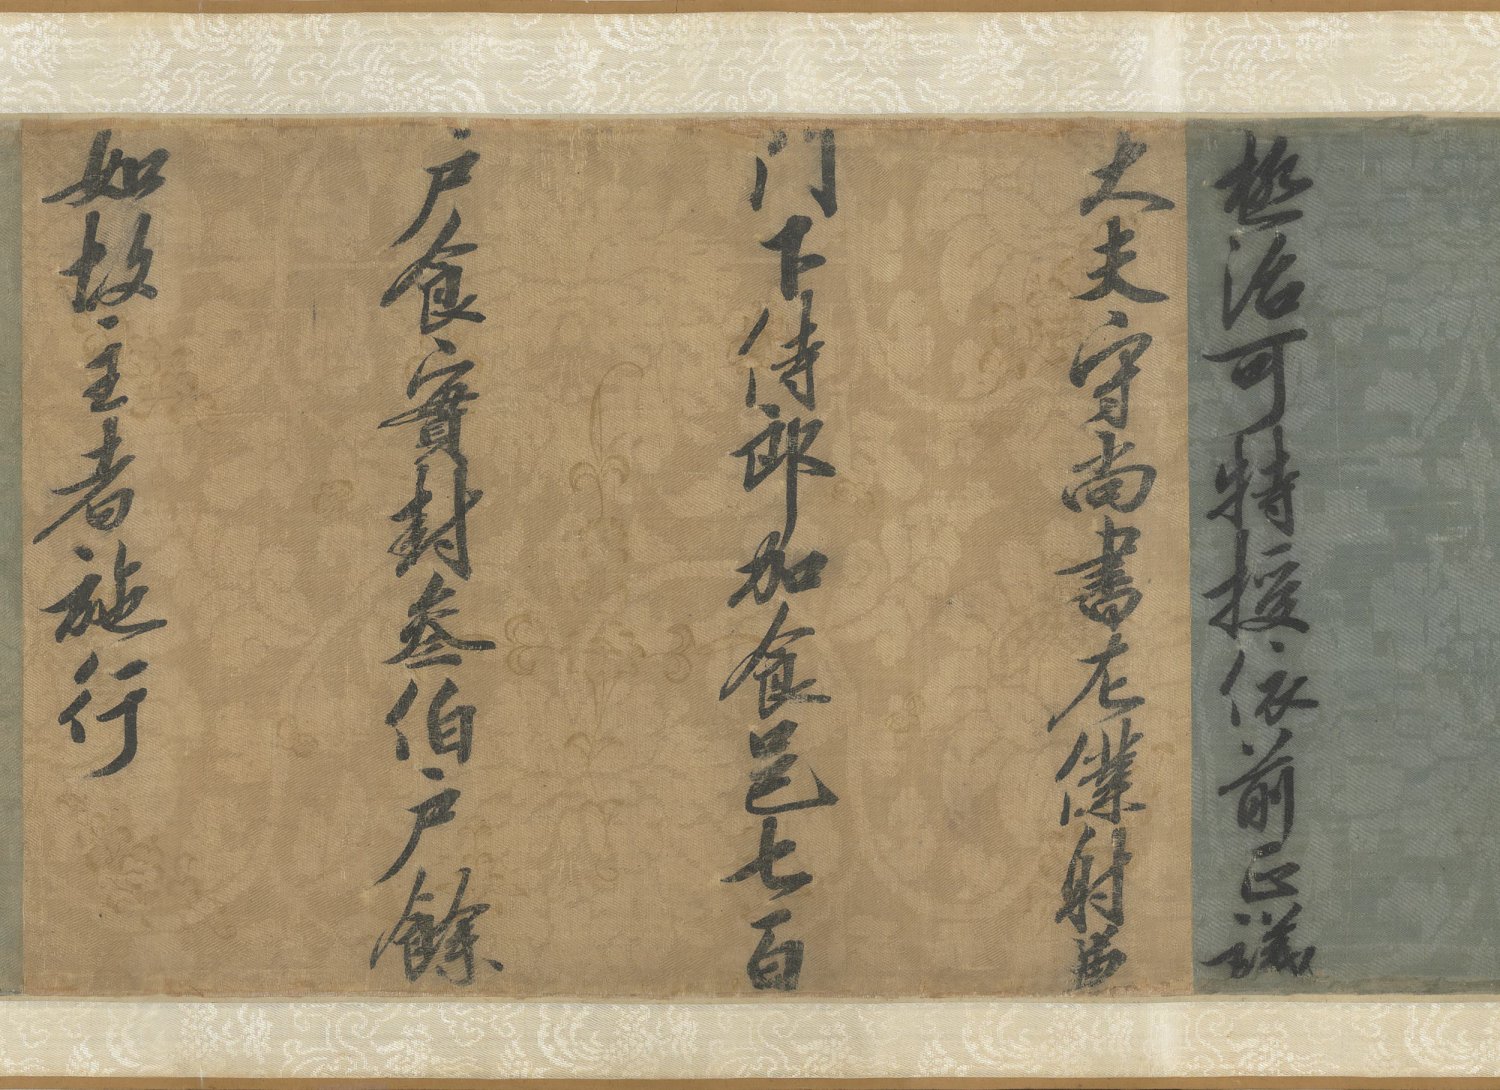 極治可特授依前正議
大夫守尚書左僕射兼
門下侍郎加食邑七百
戶食實封叁伯戶餘
如故主者施行